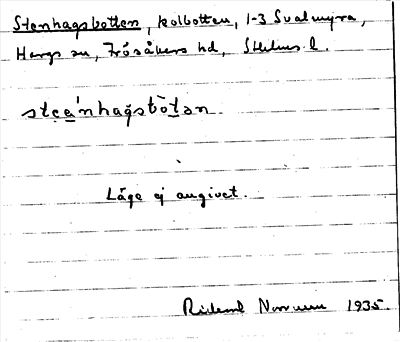 Stenhagsbotten, kolbotten, 1-3 Svalmyra,
Hargs sn, Frösåkers hd, Sthlms l.
stęa̱ǹhag̀sbòt̲ən
Läge ej angivet.
Rideml 1935.